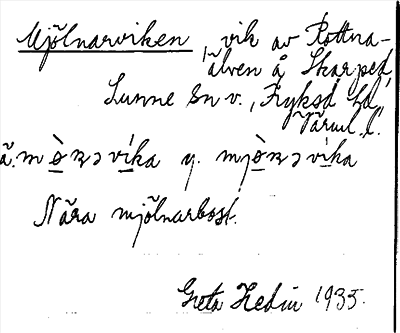 Mjölnarviken, vik av Rottna-
älven å Skarped,
Lunne Sn v., Fryksd. hd,
Värml. l.
ä. mò̤ɴə vi̤ka y. mjò̤ɴə vi̤ka
Nära mjölnarbost.
Greta Hedin 1935.